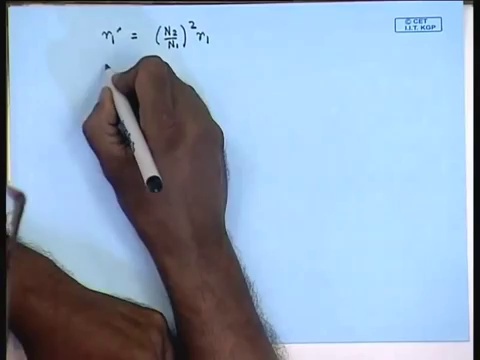 r₁' = (N₂/N₁)² r₁
© CET
I.I.T. KGP